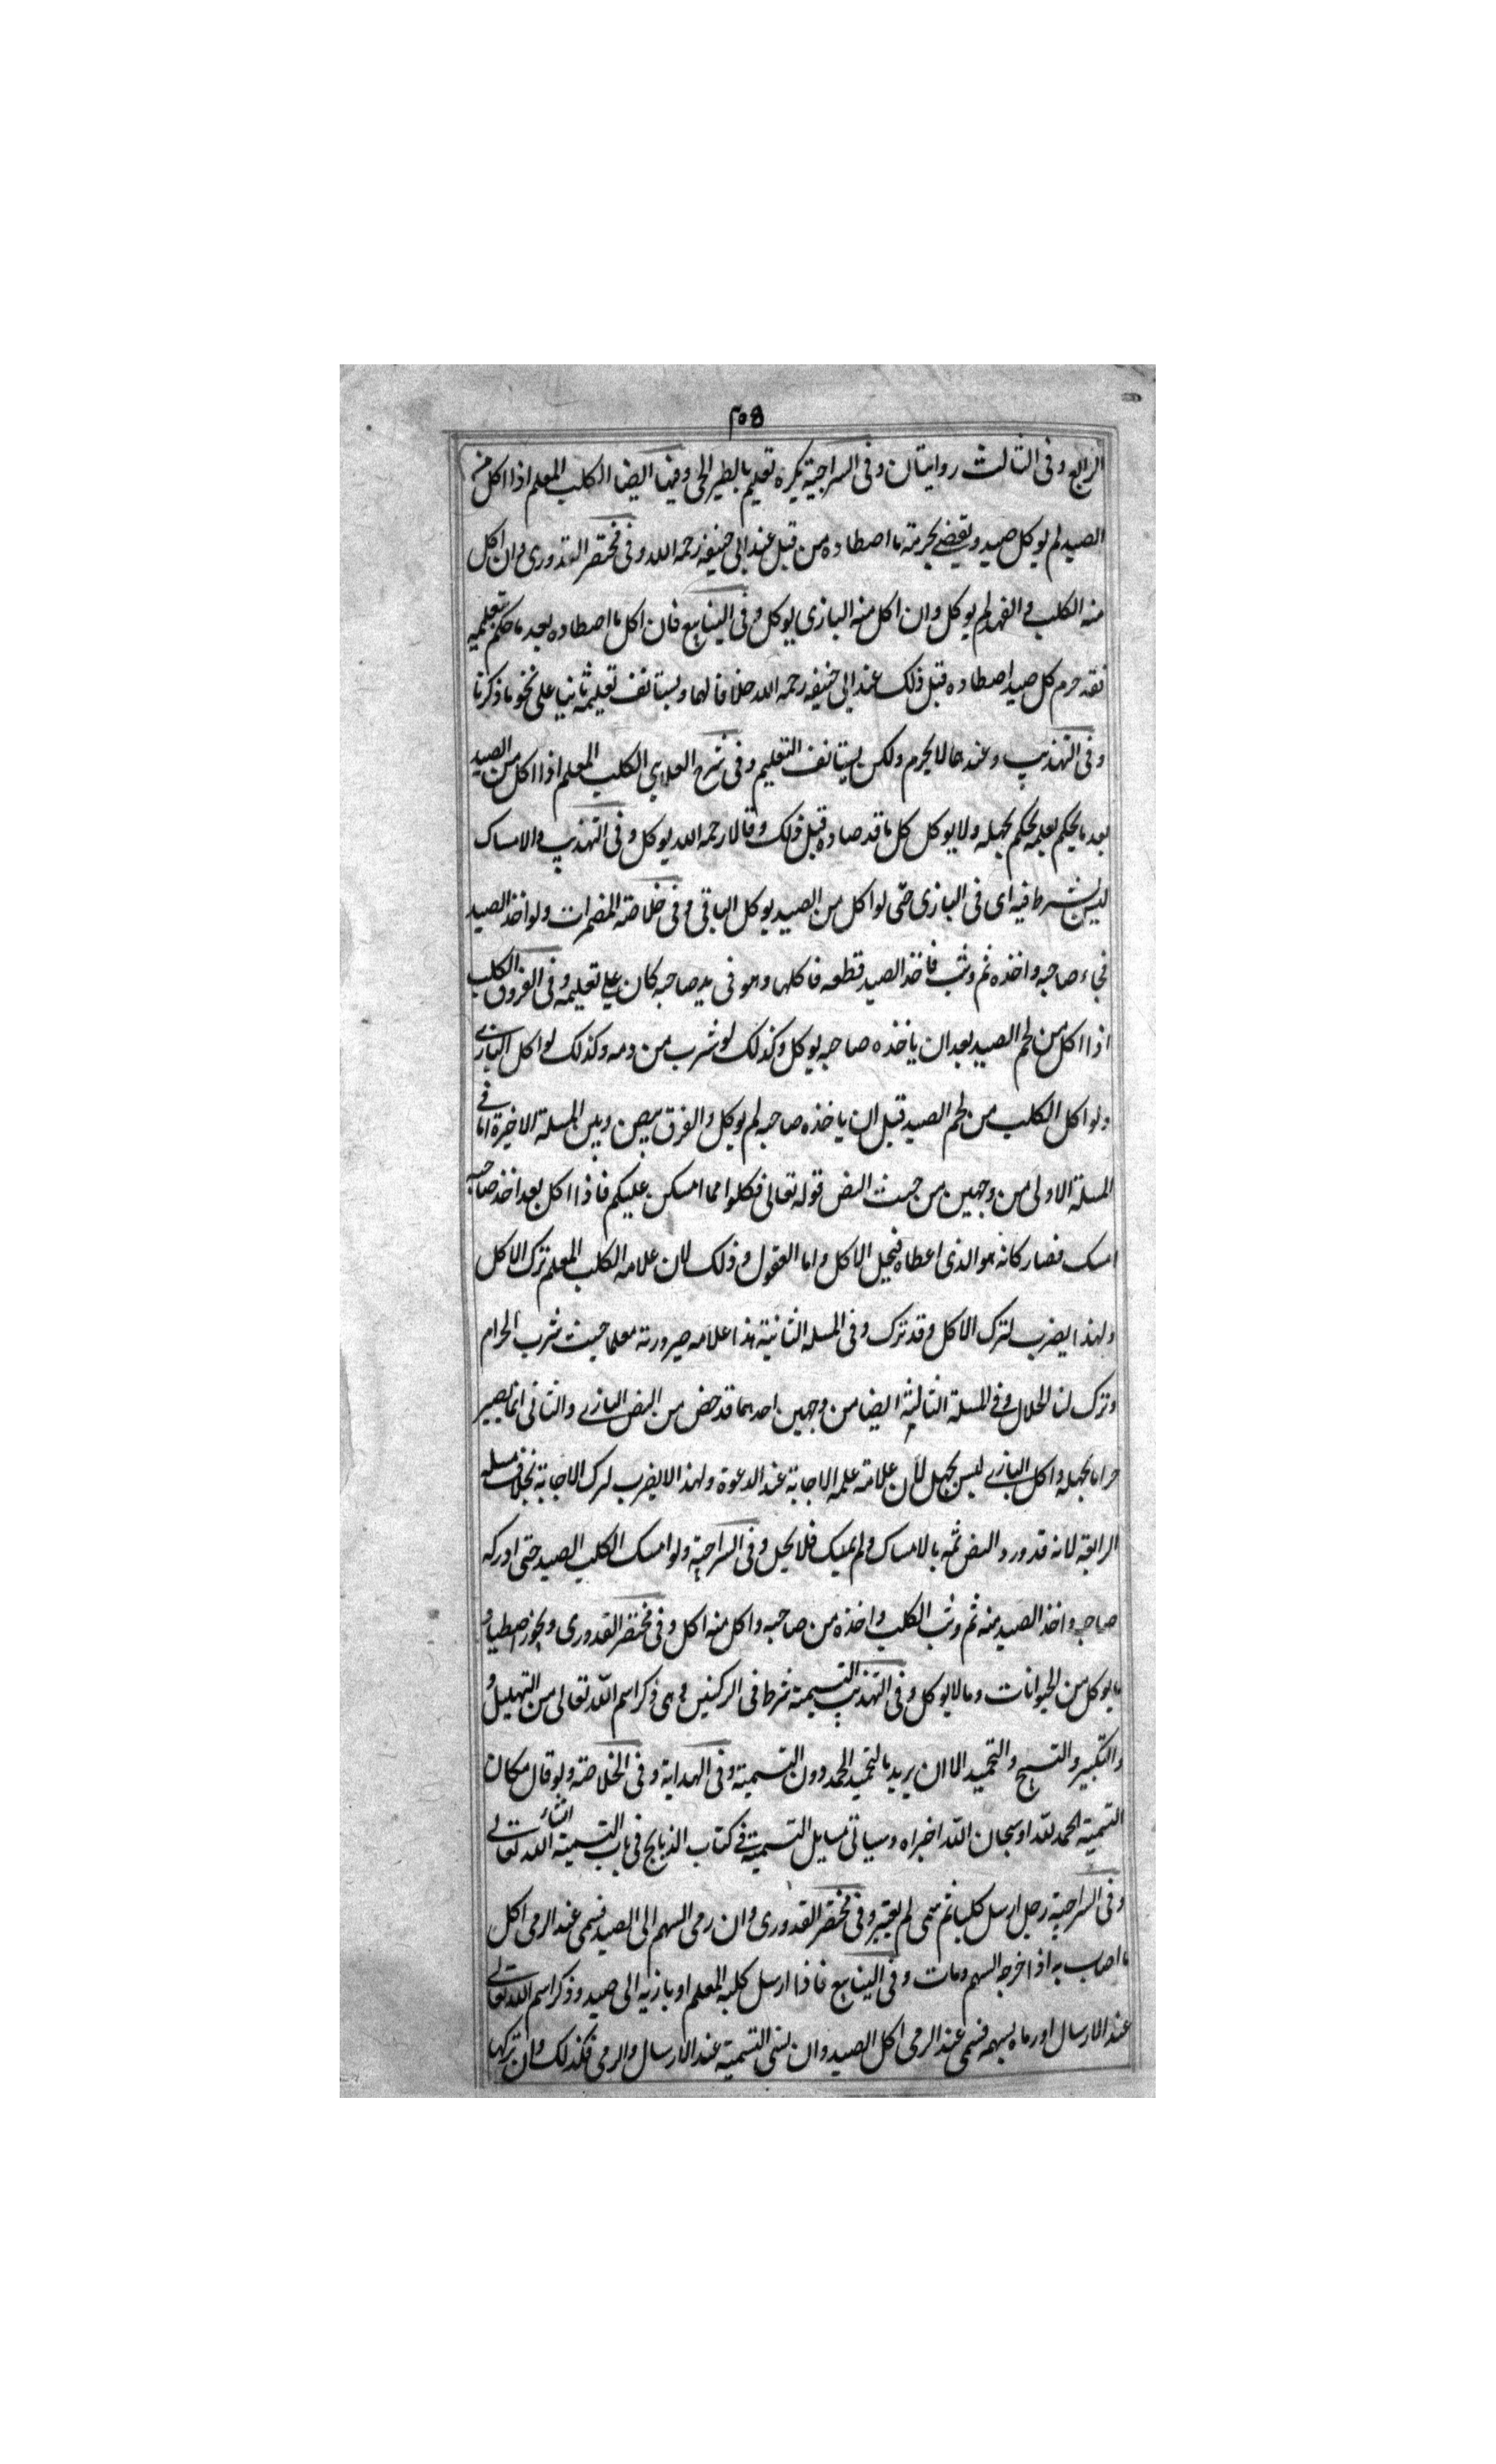 ٢٥٤
الرابع وفى الثالث روايتان وفى السراجية يكره تعليم بالطير الحى وفيها ايضا الكلب المعلم اذا اكل من
الصيد لم يوكل صيده ويقضى بحرمته ما اصطاده من قبل عند ابى حنيفه رحمه الله وفى مختصر القدورى وان اكل
منه الكلب والفهد لم يوكل وان اكل منه البازى يوكل وفى الينابيع فان اكل ما اصطاده بعد ما حكم بتعليمه
فقد حرم كل صيد اصطاده قبل ذلك عند ابى حنيفه رحمه الله خلافا لهما ويستانف تعليمه ثانيا على نحو ما ذكرنا
وفى التهذيب وعندهما لا يحرم ولكن يستانف التعليم وفى شرح العلاى الكلب المعلم اذا اكل من الصيد
بعد ما يحكم بعلمه يحكم بجهله ولا يوكل كل ما قد صاده قبل ذلك وقالا رحمه الله يوكل وفى التهذيب والامساك
ليس بشرط فيه اى فى البازى حتى لو اكل من الصيد يوكل الباقى وفى خلاصة المضمرات ولو اخذ الصيد
فجاء صاحبه واخذه ثم وثب فاخذ الصيد قطعه فاكلها وهو فى يد صاحبه كان على تعليمه وفى الفروق الكلب
اذا اكل من لحم الصيد بعد ان ياخذه صاحبه يوكل وكذلك لو شرب من دمه وكذلك لو اكل البازى
ولو اكل الكلب من لحم الصيد قبل ان ياخذه صاحبه لم يوكل والفرق بيهن وبين المسلة الاخيرة اما فى
المسلة الاولى من وجهين من حيث النص قوله تعالى فكلوا مما امسكن عليكم فاذا اكل بعد اخذ صاحبه
امسك فصار كانه هو الذى اعطاه فيحل الاكل واما العقول وذلك لان علامه الكلب المعلم ترك الاكل
ولهذا يضرب لترك الاكل وقد ترك وفى المسله الثانية هذا علامه صيرورته معلما حيث شرب الحرام
وترك لنا الحلال وفى المسلة الثالثية ايضا من وجهين احدهما قد خص من النص البازى والثانى انما يصير
حراما بجهله واكل البازى ليس بجهل لان علامة علمه الاجابة عند الدعوة ولهذا لا يضرب لترك الاجابة بخلاف مسله
الرابعة لانه قد ورد النص ثمه بالامساك ولم يمسك فلا يحل وفى السراجية ولو امسك الكلب الصيد حتى ادركه
صاحبه واخذ الصيد منه ثم وثب الكلب واخذه من صاحبه واكل منه اكل وفى مختصر القدورى ويجوز اصطياد
ما يوكل من الحيوانات وما لا يوكل وفى التهذيب التسمية شرط فى الركنين وهى ذكر اسم الله تعالى من التهليل و
والتكبير والتسبيح والتحميد الا ان يريد بالتحميد الحمد دون التسمية وفى الهداية وفى الخلاصة ولو قال مكان
التسمية الحمد لله او سبحان الله اجزاه وسياتى مسايل التسمية فى كتاب الذبايح فى باب التسمية انشاء الله تعالى
وفى السراجية رجل ارسل كلبا ثم سمى لم يعتبر وفى مختصر القدورى وان رمى السهم الى الصيد فسمى عند الرمى اكل
ما اصاب به اذا خرجه السهم ومات وفى الينابيع فاذا ارسل كلبه المعلم او بازيه الى صيد وذكر اسم الله تعالى
عند الارسال او رماه بسهمه فسمى عند الرمى اكل الصيد وان نسى التسمية عند الارسال والرمى فكذلك وان تركها